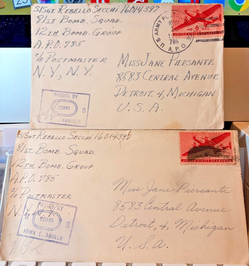 S/Sgt Rebello Secchi 16014397
81st Bomb. Squad.
12th Bomb. Group
A.P.O. 735
% Postmaster
N.Y., N.Y.
U.S. ARMY
A.P.O.
PASSED BY
Miss Jane Piersante
8583 Central Avenue
Detroit, 4, Michigan
U.S.A.
S/Sgt Rebello Secchi 16014397
81st Bomb. Squad.
12th Bomb. Group
A.P.O. 735
% Postmaster
N.Y.
ARMY EXAMINER
Miss Jane Piersante
8583 Central Avenue
Detroit, 4, Michigan
U.S.A.